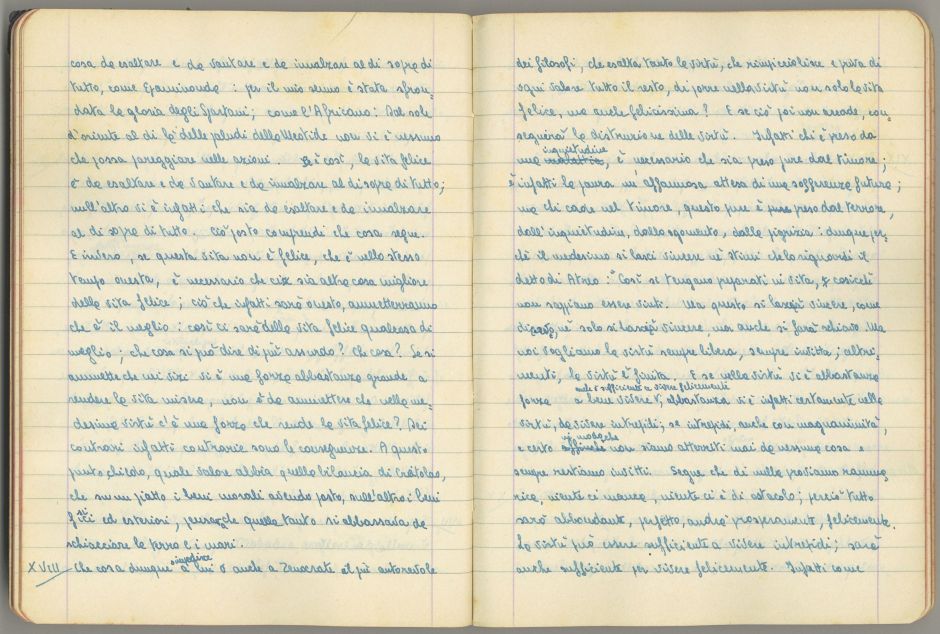 cosa da esaltare e da vantare e da innalzare al di sopra di
tutto, come Epaminonda : per il mio senno è stata sfron-
data la gloria degli Spartani; come l'Africano: Dal sole
d'oriente al di là delle paludi della Meotide non vi è nessuno
che possa pareggiare nelle azioni. è così, la vita felice
è da esaltare e da vantare e da innalzare al di sopra di tutto;
null'altro vi è infatti che sia da esaltare e da innalzare
al di sopra di tutto. Ciò posto comprendi che cosa segue.
E invero, se questa vita non è felice, che è nello stesso
tempo onesta, è necessario che sia altra cosa migliore
della vita felice; ciò che infatti sarà onesto, ammetteranno
che è il meglio : così ci sarà della vita felice qualcosa di
meglio; che cosa si può dire di più assurdo? Che cosa? Se si
ammette che nei vizi vi è una forza abbastanza grande a
rendere la vita misera, non è da ammettere che nella me-
desima virtù c'è una forza che rende la vita felice? Dei
contrari infatti contrarie sono le conseguenze. A questo
punto chiedo, quale valore abbia quella bilancia di Critolao,
che su un piatto i beni morali avendo posto, sull'altro i beni
fisici ed esteriori, pensa che quella tanto si abbassava da
schiacciare la terra e i mari.
XVIII Che cosa dunque impedire a lui o anche a Senocrate il più autorevole
dei filosofi, che esalta tanto la virtù, che rimpicciolisce e priva di
ogni valore tutto il resto, di porre nella virtù non solo la vita
felice, ma anche felicissima? E se ciò poi non accade, con-
seguirà la distruzione delle virtù. Infatti chi è preso da
una malattia, inquietudine è necessario che sia preso pure dal timore;
è infatti la paura un' affannosa attesa di una sofferenza futura;
ma chi cade nel timore, questo pure è pure preso dal terrore,
dall'inquietudine, dallo sgomento, dalla pigrizia : dunque per-
chè il medesimo si lasci vincere nè stimi che lo riguardi il
detto di Atreo : "Così si tengano preparati in vita, cosicchè
non sappiano essere vinti. Ma questo si lascia vincere, come
dissi, nè solo si lascerà vincere, ma anche si farà schiavo. Ma
noi vogliamo la virtù sempre libera, sempre invitta; altri-
menti, la virtù è finita. E se nella virtù vi è abbastanza
forza a bene vivere, anche è sufficiente a vivere felicemente abbastanza vi è infatti certamente nella
virtù, da vivere intrepidi; se intrepidi, anche con magnanimità,
e certo affinchè in modo che non siamo atterriti mai da nessuna cosa e
sempre restiamo invitti. Segue che di nulla proviamo ramma-
rico, niente ci manca, niente ci è di ostacolo; perciò tutto
sarà abbondante, perfetto, andrà prosperamente, felicemente.
La virtù può essere sufficiente a vivere intrepidi; sarà
anche sufficiente per vivere felicemente. Infatti come